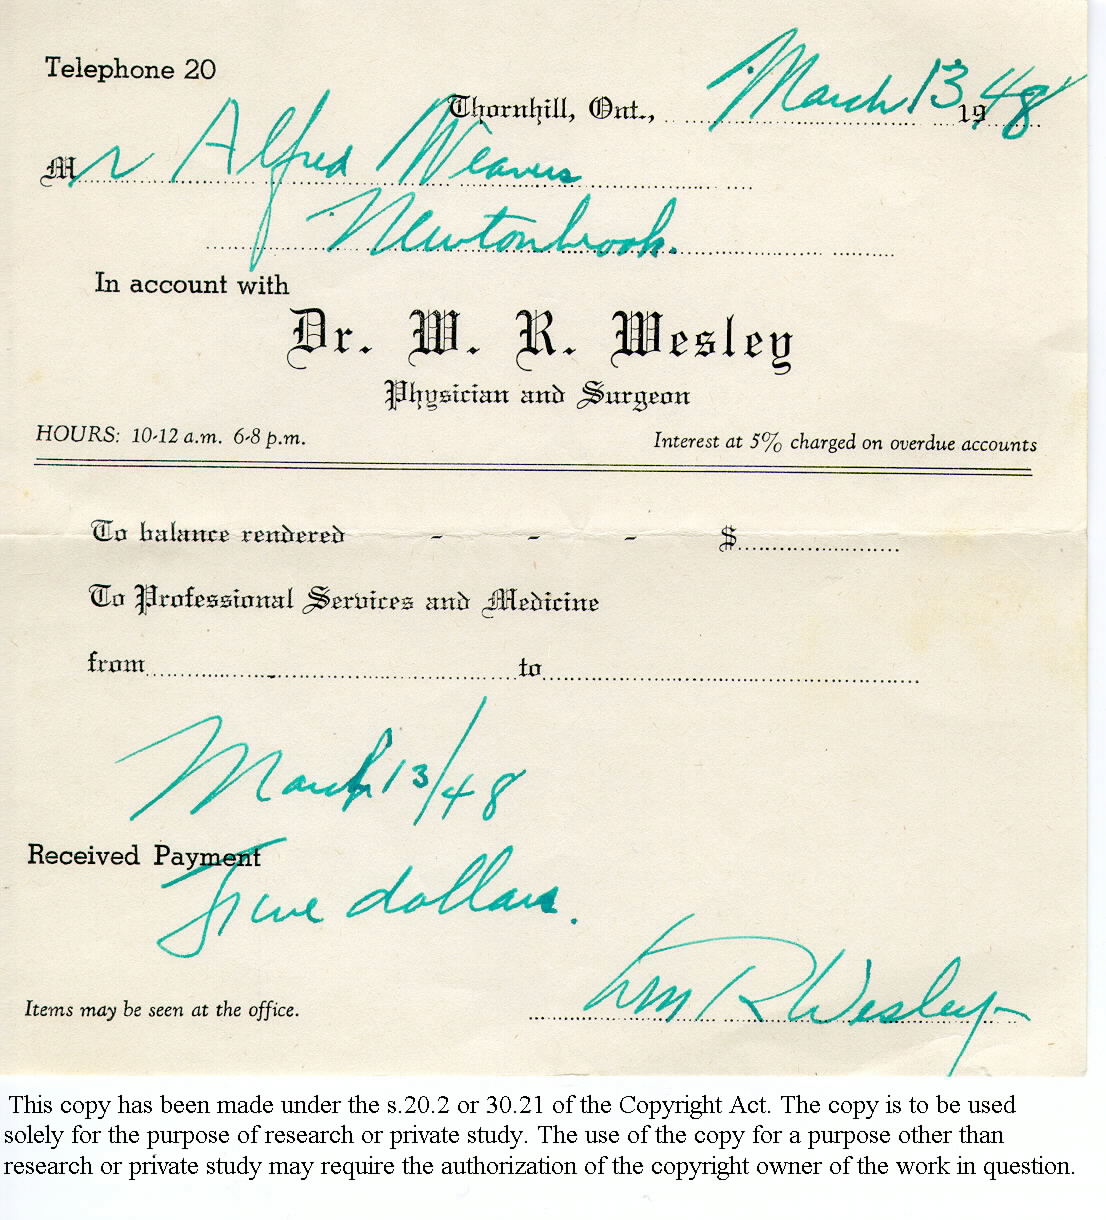 Telephone 20
Thornhill, Ont., March 13 1948
Mr Alfred Weavers
Newtonbrook.
In account with
Dr. W. R. Wesley
Physician and Surgeon
HOURS: 10-12 a.m. 6-8 p.m. Interest at 5% charged on overdue accounts
To balance rendered - - - $
To Professional Services and Medicine
from to
March 13/48
Received Payment
Five dollars.
Wm R Wesley
Items may be seen at the office.
This copy has been made under the s.20.2 or 30.21 of the Copyright Act. The copy is to be used
solely for the purpose of research or private study. The use of the copy for a purpose other than
research or private study may require the authorization of the copyright owner of the work in question.